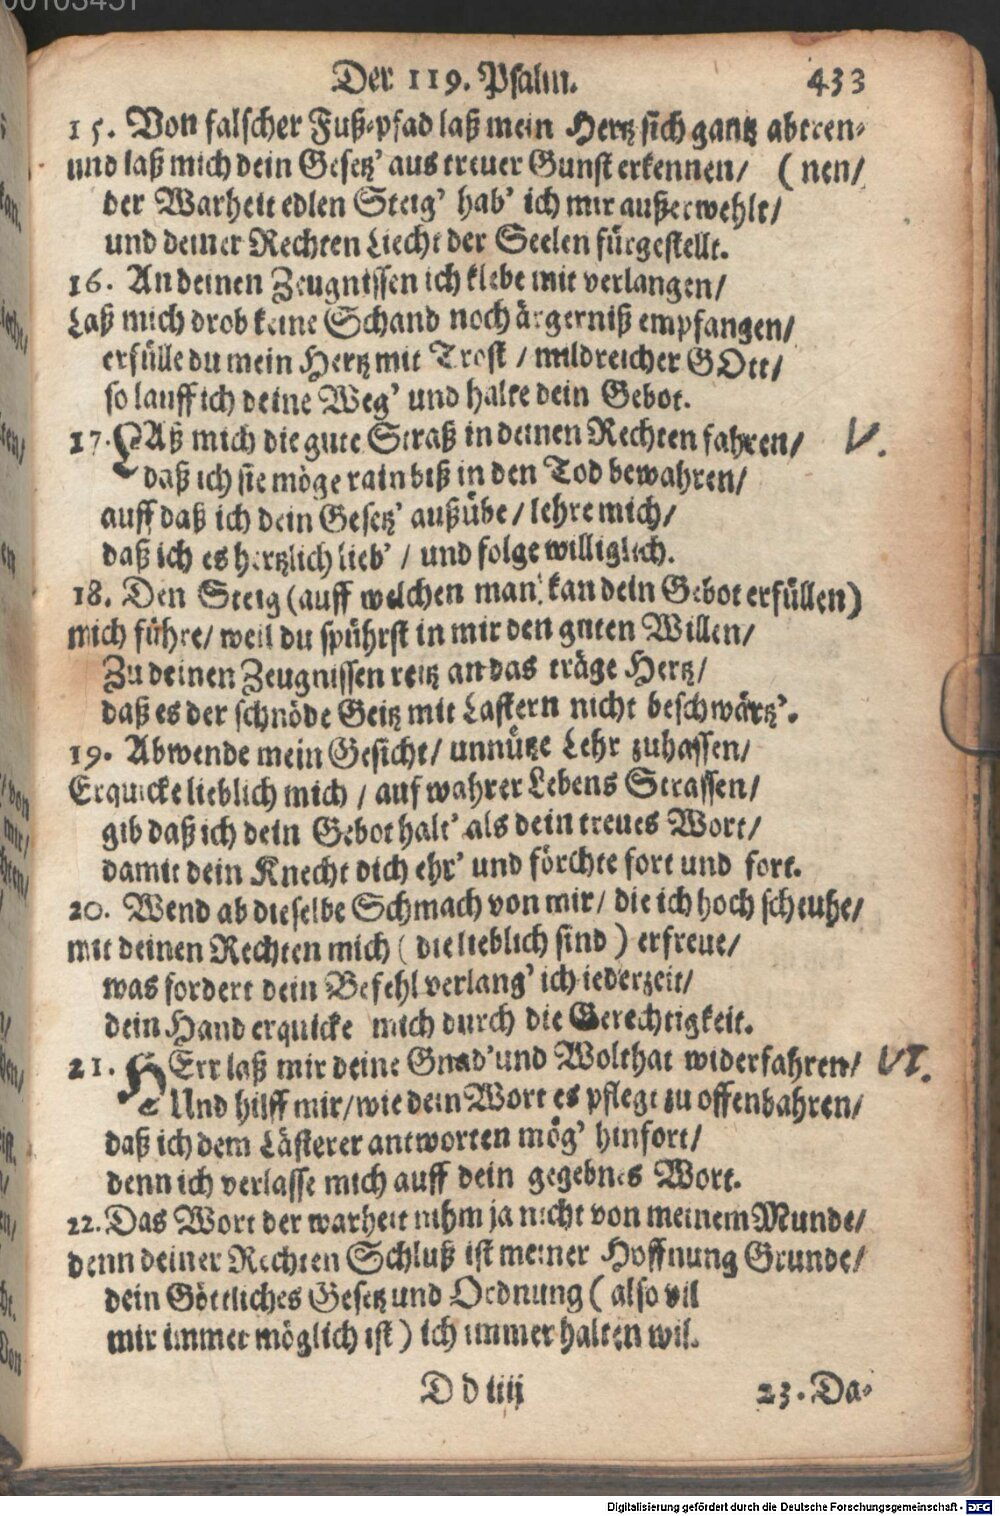 Der 119. Psalm. 433
15. Von falscher Fuß-pfad laß mein Hertz sich gantz abtren-
und laß mich dein Gesetz' aus treuer Gunst erkennen/ (nen/
der Warheit edlen Steig' hab' ich mir außerwehlt/
und deiner Rechten Liecht der Seelen fürgestellt.
16. An deinen Zeugnissen ich klebe mit verlangen/
Laß mich drob keine Schand noch ärgerniß empfangen/
erfülle du mein Hertz mit Trost / mildreicher GOtt/
so lauff ich deine Weg' und halte dein Gebot.
17. LAß mich die gute Straß in deinen Rechten fahren/ V.
daß ich sie möge rain biß in den Tod bewahren/
auff daß ich dein Gesetz' außübe / lehre mich/
daß ich es hertzlich lieb' / und folge williglich.
18. Den Steig (auff welchen man kan dein Gebot erfüllen)
mich führe/ weil du spührst in mir den guten Willen/
Zu deinen Zeugnissen reitz an das träge Hertz/
daß es der schnöde Geitz mit Lastern nicht beschwärtz'.
19. Abwende mein Gesicht/ unnütze Lehr zuhassen/
Erquicke lieblich mich / auf wahrer Lebens Strassen/
gib daß ich dein Gebot halt' als dein treues Wort/
damit dein Knecht dich ehr' und förchte fort und fort.
20. Wend ab dieselbe Schmach von mir/ die ich hoch scheuhe/
mit deinen Rechten mich (die lieblich sind) erfreue/
was fordert dein Befehl verlang' ich iederzeit/
dein Hand erquicke mich durch die Gerechtigkeit.
21. HErr laß mir deine Gnad' und Wolthat widerfahren/ VI.
Und hilff mir/ wie dein Wort es pflegt zu offenbahren/
daß ich dem Lästerer antworten mög' hinfort/
denn ich verlasse mich auff dein gegebnes Wort.
22. Das Wort der warheit nihm ja nicht von meinem Munde/
denn deiner Rechten Schluß ist meiner Hoffnung Grunde/
dein Göttliches Gesetz und Ordnung (also vil
mir immer möglich ist) ich immer halten wil.
D d iiij 23. Da-
Digitalisierung gefördert durch die Deutsche Forschungsgemeinschaft - DFG